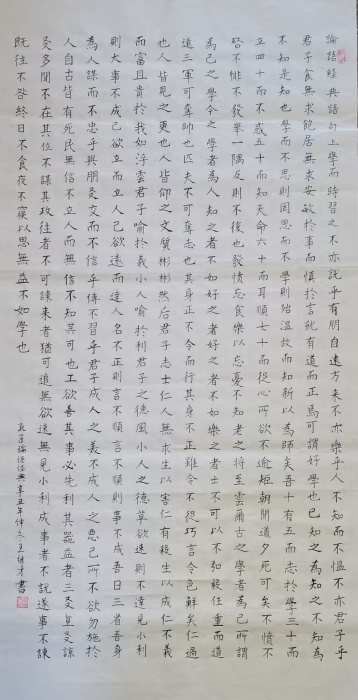 論語經典語句上學而時習之不亦說乎有朋自遠方來不亦樂乎人不知而不愠不亦君子乎
君子食無求飽居無求安敏於事而慎於言就有道而正焉可謂好學也已知之為知之不知為
不知是知也學而不思則罔思而不學則殆溫故而知新可以為師矣吾十有五而志於學三十而
立四十而不惑五十而知天命六十而耳順七十而從心所欲不逾矩朝聞道夕死可矣不憤不
啓不悱不發舉一隅反則不復也發憤忘食樂以忘憂不知老之將至雲爾古之學者為己所謂
為己之學今之學者為人知之者不如好之者好之者不如樂之者士不可以不弘毅任重而道
遠三軍可奪帥也匹夫不可奪志也其身正不令而行其身不正雖令不從巧言令色鮮矣仁過
也人皆見之更也人皆仰之文質彬彬然后君子志士仁人無求生以害仁有殺生以成仁不義
而富且貴於我如浮雲君子喻於義小人喻於利君子之德風小人之德草欲速則不達見小利
則大事不成己欲立而立人己欲達而達人名不正則言不順言不順則事不成吾日三省吾身
為人謀而不忠乎與朋友交而不信乎傳不習乎君子成人之美不成人之惡己所不欲勿施於
人自古皆有死民無信不立人而無信不知其可也工欲善其事必先利其器益者三友友直友諒
友多聞不在其位不謀其政往者不可諫來者猶可追無欲速無見小利成事者不說遂事不諫
既往不咎終日不食夜不寢以思無益不如學也
孔子論語經典辛丑年仲冬王　才書